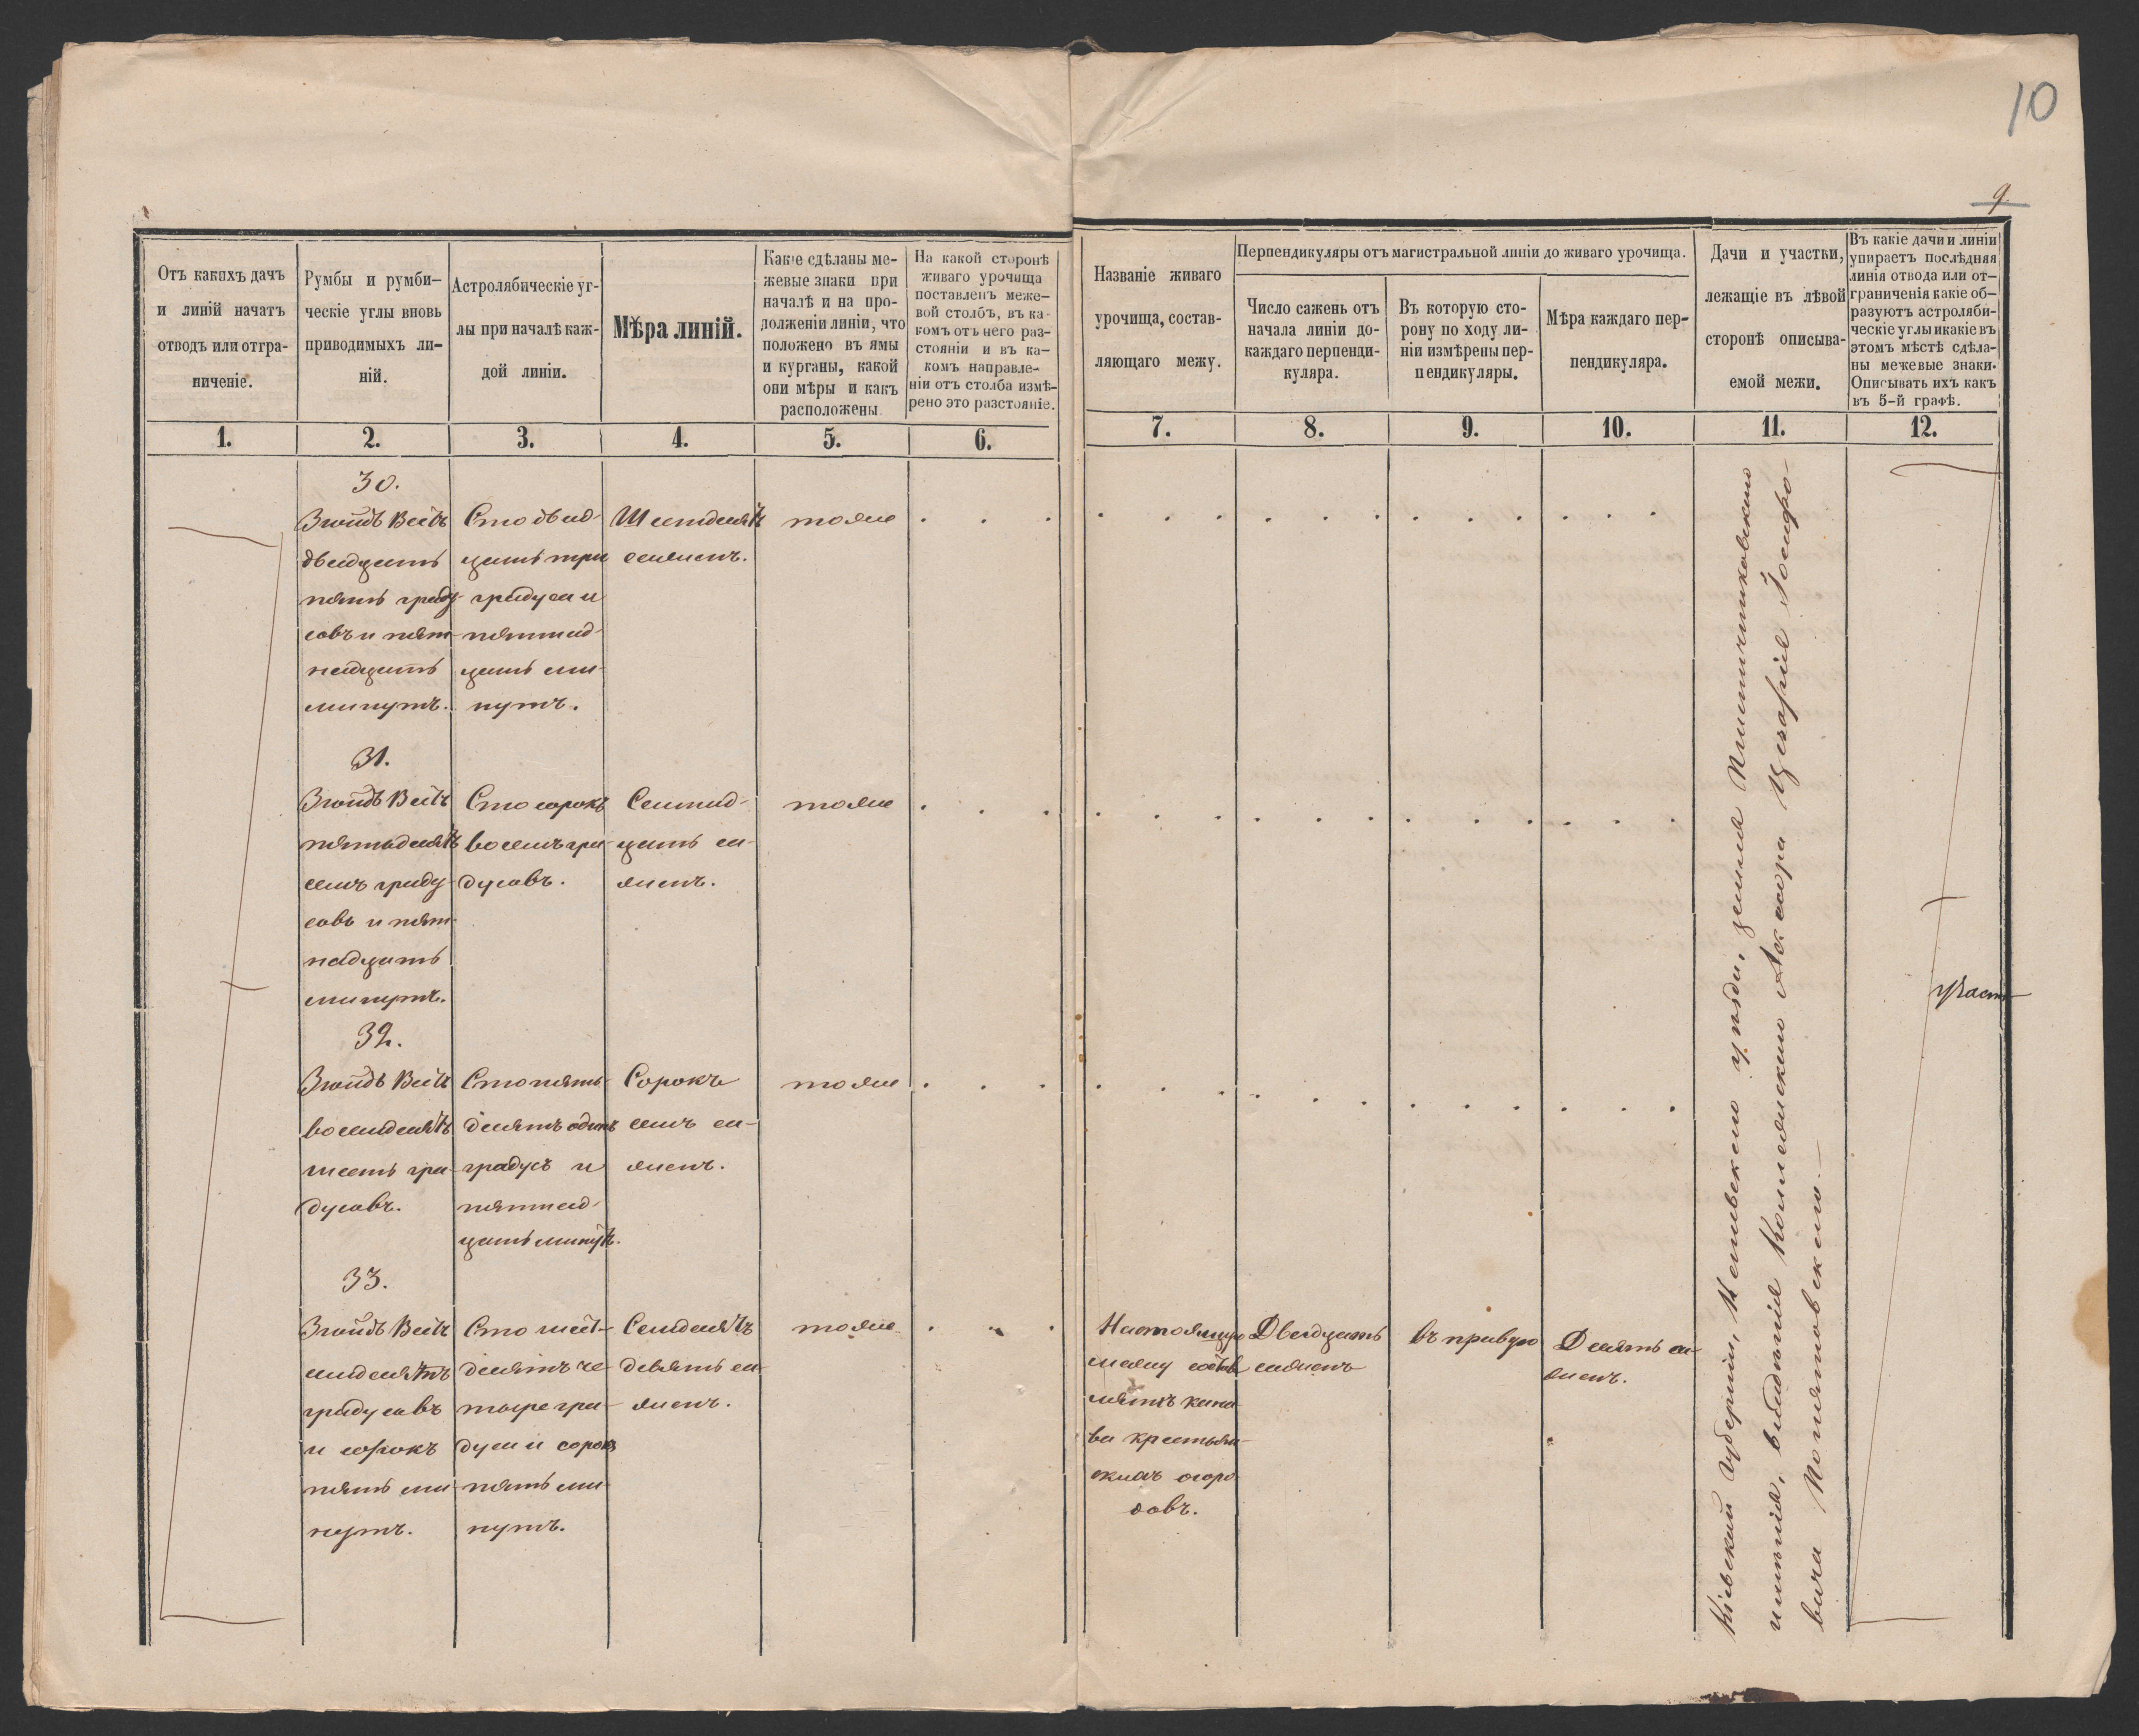 10
9.
Отъ какихъ дачъ
и линій начатъ
отводъ или отгра-
ниченіе.
Румбы и румби-
ческіе углы вновь
приводимыхъ ли-
ній.
Астролябическіе уг-
лы при началѣ каж-
дой линіи.
Мѣра линій.
Какіе сдѣланы ме-
жевые знаки при
началѣ и на про-
долженіи линіи, что
положено въ ямы
и курганы, какой
они мѣры и какъ
расположены.
На какой сторонѣ
живаго урочища
поставленъ меже-
вой столбъ, въ ка-
комъ отъ него раз-
стояніи и въ ка-
комъ направле-
ніи отъ столба измѣ-
рено это разстояніе.
Названіе живаго
урочища, состав-
ляющаго межу.
Перпендикуляры отъ магистральной линіи до живаго урочища.
Число сажень отъ
начала линіи до-
каждаго перпенди-
куляра.
Въ которую сто-
рону по ходу ли-
ніи измѣрены пер-
пендикуляры.
Мѣра каждаго пер-
пендикуляра.
Дачи и участки,
лежащіе въ лѣвой
сторонѣ описыва-
емой межи.
Въ какіе дачи и линіи
упираетъ послѣдняя
линія отвода или от-
граниченія какіе об-
разуютъ астроляби-
ческіе углы и какіе въ
этомъ мѣстѣ сдѣла-
ны межевые знаки.
Описывать ихъ какъ
въ 5-й графѣ.
1. 2. 3. 4. 5. 6. 7. 8. 9. 10. 11. 12.
30.
Зюйдъ Вестъ
двадцать
пять граду-
совъ и пят-
надцать
минутъ.
Сто двад-
цать три
градуса и
пятнад-
цать ми-
нутъ.
Шестдесятъ
сажень.
тоже
31.
Зюйдъ Вестъ
пятьдесятъ
семь граду-
совъ и пят-
надцать
минутъ.
Сто сорокъ
восемь гра-
дусовъ.
Семнад-
цать са-
жень.
тоже
32.
Зюйдъ Вестъ
восемдесятъ
шесть гра-
дусовъ.
Сто пять-
десятъ одинъ
градусъ и
пятнад-
цать минутъ.
Сорокъ
семь са-
жень.
тоже
33.
Зюйдъ Вестъ
семдесятъ
градусовъ
и сорокъ
пять ми-
нутъ.
Сто шест-
десятъ че-
тыре гра-
дуса и сорокъ
пять ми-
нутъ.
Семдесятъ
девять са-
жень.
тоже
Настоящую
межу состав-
ляетъ кана-
ва крестьян-
скихъ огоро-
довъ.
Двадцать
сажень
въ правую
Десять са-
жень.
Кіевской губерніи, Каневского уѣзда, земля Пшеничниковского
имѣнія, владѣнія Коллежского Ассесора Цезарія Іосифо-
вича Понятовского.
Участ-